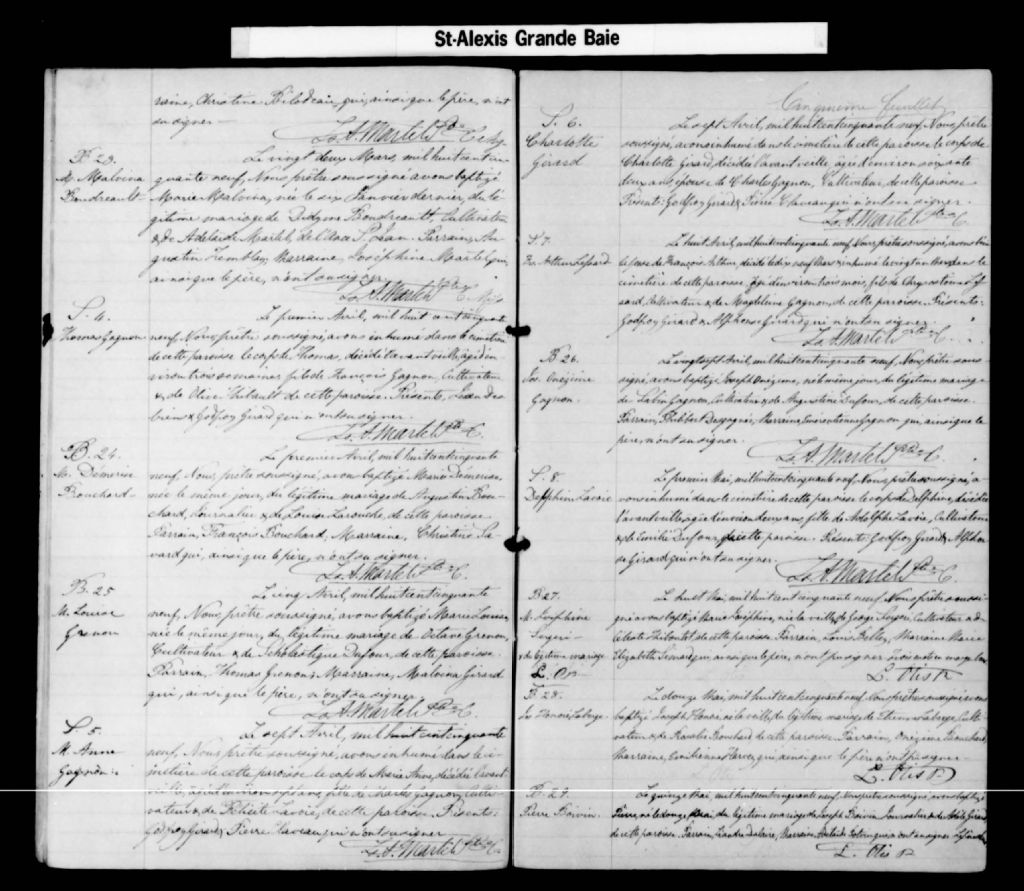 St-Alexis Grande Baie
raine, Christine Bilodeau, qui, ainsi que le père, n'ont
su signer
Ls A. Martel Ptre
B. 23.
M. Malvina
Boudreault
Le vingt deux Mars, mil huit cent cin
quante neuf, Nous prêtre soussigné avons baptizé
Marie Malvina, née le six Janvier dernier, du lé
gitime mariage de Didyme Boudreault, Cultivateur
& de Adelaide Martel, de St Jean. Parrain, Au
gustin Tremblay, Marraine, Joséphine Martel qui,
ainsi que le père, n'ont su signer.
Ls A. Martel Ptre
S. 4.
Thomas Gagnon
Le premier Avril, mil huit cent cinquante
neuf, Nous prêtre soussigné, avons inhumé dans le cimetière
de cette paroisse le corps de Thomas, décédé l'avant veille, agé d'en
viron trois semaines, fils de François Gagnon, Cultivateur
& de Olive Thibault de cette paroisse. Présents, Jean Des
biens & Godfroy Girard qui n'ont su signer.
Ls A. Martel Ptre C.
B. 24.
M. Démerise
Bouchard
Le premier Avril, mil huit cent cinquante
neuf, Nous, prêtre soussigné, avons baptizé Marie Démerise,
née le même jour, du légitime mariage de Augustin Bou
chard, Journalier & de Louise Larouche, de cette paroisse.
Parrain, François Bouchard, Marraine, Christine Sa
vard qui, ainsi que le père, n'ont su signer.
Ls A. Martel Ptre C.
B. 25
M. Louise
Grenon
Le cinq Avril, mil huit cent cinquante
neuf, Nous, prêtre soussigné, avons baptizé Marie Louise,
née le même jour, du légitime mariage de Octave Grenon,
Cultivateur & de Scholastique Dufour, de cette paroisse.
Parrain, Thomas Grenon & Marraine, Malvina Girard
qui, ainsi que le père, n'ont su signer.
Ls A. Martel Ptre C.
S. 5.
M. Anne
Gagnon
Le sept Avril, mil huit cent cinquante
neuf, Nous prêtre soussigné, avons inhumé dans le ci
metière de cette paroisse le corps de Marie Anne, décédée l'avant
veille, agée d'environ sept ans, fille de Charles Gagnon, Culti
vateur & de Félicité Lavoie, de cette paroisse. Présents:
Godfroy Girard & Pierre qui n'ont su signer
Ls A. Martel Ptre C.
Cinquième feuillet
S. 6.
Charlotte
Girard
Le sept Avril, mil huit cent cinquante neuf, Nous, prêtre
soussigné, avons inhumé dans le cimetière de cette paroisse le corps de
Charlotte Girard, décédée l'avant veille agée d'environ soixante
deux ans, épouse de Charles Gagnon, Cultivateur, de cette paroisse.
Présents: Godfroy Girard & Pierre qui n'ont su signer.
Ls A. Martel Ptre C.
S. 7.
Frs. Arthur Lessard
Le huit Avril, mil huit cent cinquante neuf, Nous prêtre soussigné, avons
le corps de François Arthur, décédé le dix neuf Mars & inhumé le vingt un dans le
cimetière de cette paroisse, agé d'environ trois mois, fils de Chrysostome Les
sard, Cultivateur & de Magdeleine Gagnon, de cette paroisse. Présents:
Godfroy Girard & Alphonse Girard qui n'ont su signer.
Ls A. Martel Ptre C.
B. 26.
Jos. Onézime
Gagnon.
Le vingt sept Avril, mil huit cent cinquante neuf, Nous prêtre sous
signé, avons baptizé Joseph Onézime, né le même jour, du légitime mariage
de Sabin Gagnon, Cultivateur & de Augustine Dufour, de cette paroisse.
Parrain, Philibert Desgagnés, Marraine, Gagnon qui, ainsi que le
père, n'ont su signer.
Ls A. Martel Ptre C.
S. 8.
Delphine Lavoie
Le premier Mai, mil huit cent cinquante neuf, Nous prêtre soussigné, a
vons inhumé dans le cimetière de cette paroisse le corps de Delphine, décédée
l'avant veille, agée d'environ deux ans, fille de Adolphe Lavoie, Cultivateur
& de Emilie Dufour, de cette paroisse. Présents Godfroy Girard & Alphon
se Girard qui n'ont su signer
Ls A. Martel Ptre C.
B. 27.
M. Joséphine
Le huit Mai, mil huit cent cinquante neuf, Nous prêtre soussi
gné avons baptizé Marie Joséphine, née la veille, de George Cultivateur & de
de cette paroisse. Parrain, Louis Belley, Marraine Marie
Elizabeth qui, ainsi que le père, n'ont pu signer
du légitime mariage
L. O. P.
L. Otis P.
B. 28.
Jos Honoré Laberge
Le douze Mai, mil huit cent cinquante neuf, Nous prêtre soussigné avons
baptizé Joseph Honoré, né la veille, du légitime mariage de Etienne Laberge, Culti
vateur & de Rosalie Bouchard de cette paroisse. Parrain, Onézime Bouchard,
Marraine, Emilienne Harvey qui, ainsi que le père n'ont pu signer
L. Otis P.
B. 29.
Pierre Boivin.
Le quinze Mai, mil huit cent cinquante neuf, Nous prêtre soussigné, avons baptizé
Pierre, né le douze, du légitime mariage de Joseph Boivin, Journalier & de Adèle Girard
de cette paroisse. Parrain, Marraine, qui n'ont su signer
L. Otis P.